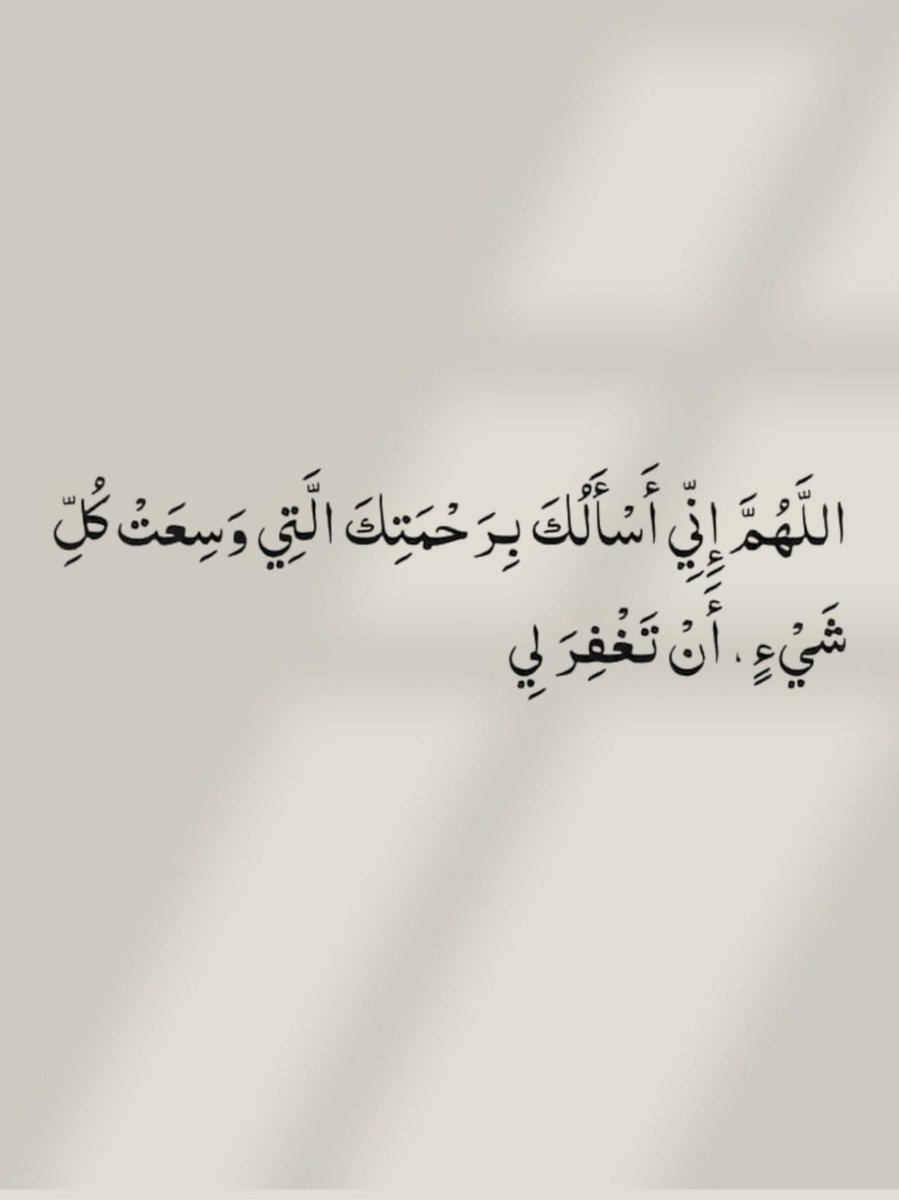 اللَّهُمَّ إِنِّي أَسْأَلُكَ بِرَحْمَتِكَ الَّتِي وَسِعَتْ كُلِّ
شَيْءٍ ، أَنْ تَغْفِرَ لِي